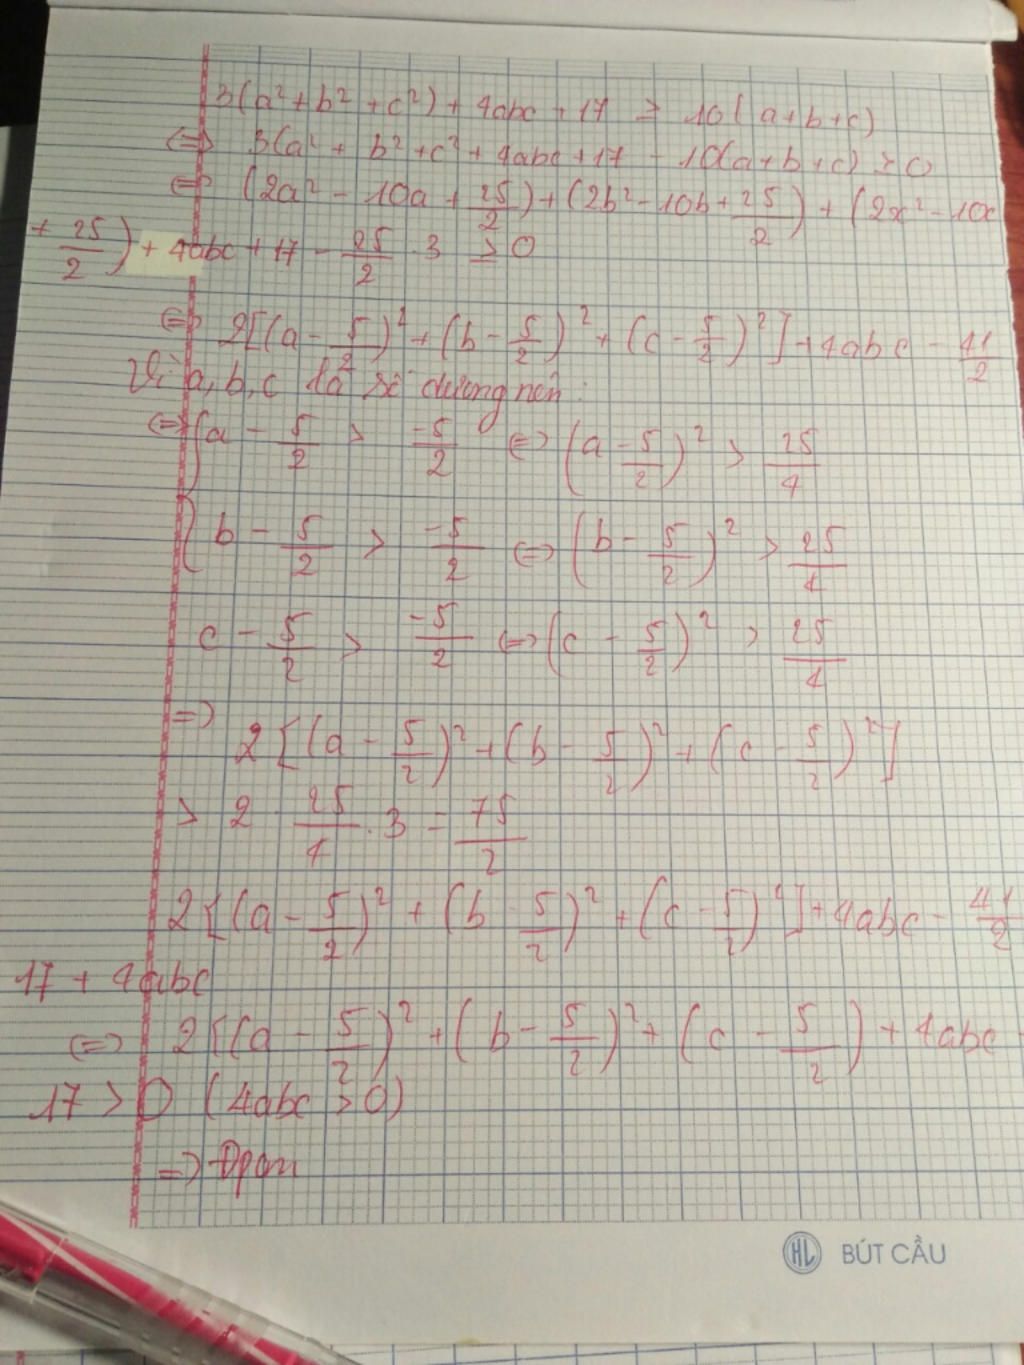 3(a² + b² + c²) + 4abc + 17 > 10(a+b+c)
<=> 3(a² + b² + c² + 4abc + 17 - 10(a+b+c) > 0
<=> (2a² - 10a + 25/2) + (2b² - 10b + 25/2) + (2x² - 10x
+ 25/2) + 4abc + 17 - 25/2 . 3 ≥ 0
<=> 2[(a - 5/2)² + (b - 5/2)² + (c - 5/2)²] + 4abc - 41/2
Vì a, b, c là số dương nên :
<=> { a - 5/2 > -5/2 <=> (a - 5/2)² > 25/4
{ b - 5/2 > -5/2 <=> (b - 5/2)² > 25/4
c - 5/2 > -5/2 <=> (c - 5/2)² > 25/4
=>
2[(a - 5/2)² + (b - 5/2)² + (c - 5/2)²]
> 2 . 25/4 . 3 = 75/2
2[(a - 5/2)² + (b - 5/2)² + (c - 5/2)²] + 4abc - 41/2
17 + 4abc
<=> 2[(a - 5/2)² + (b - 5/2)² + (c - 5/2) + 4abc
17 > 0 (4abc > 0)
=> Đpcm
HL BÚT CẦU